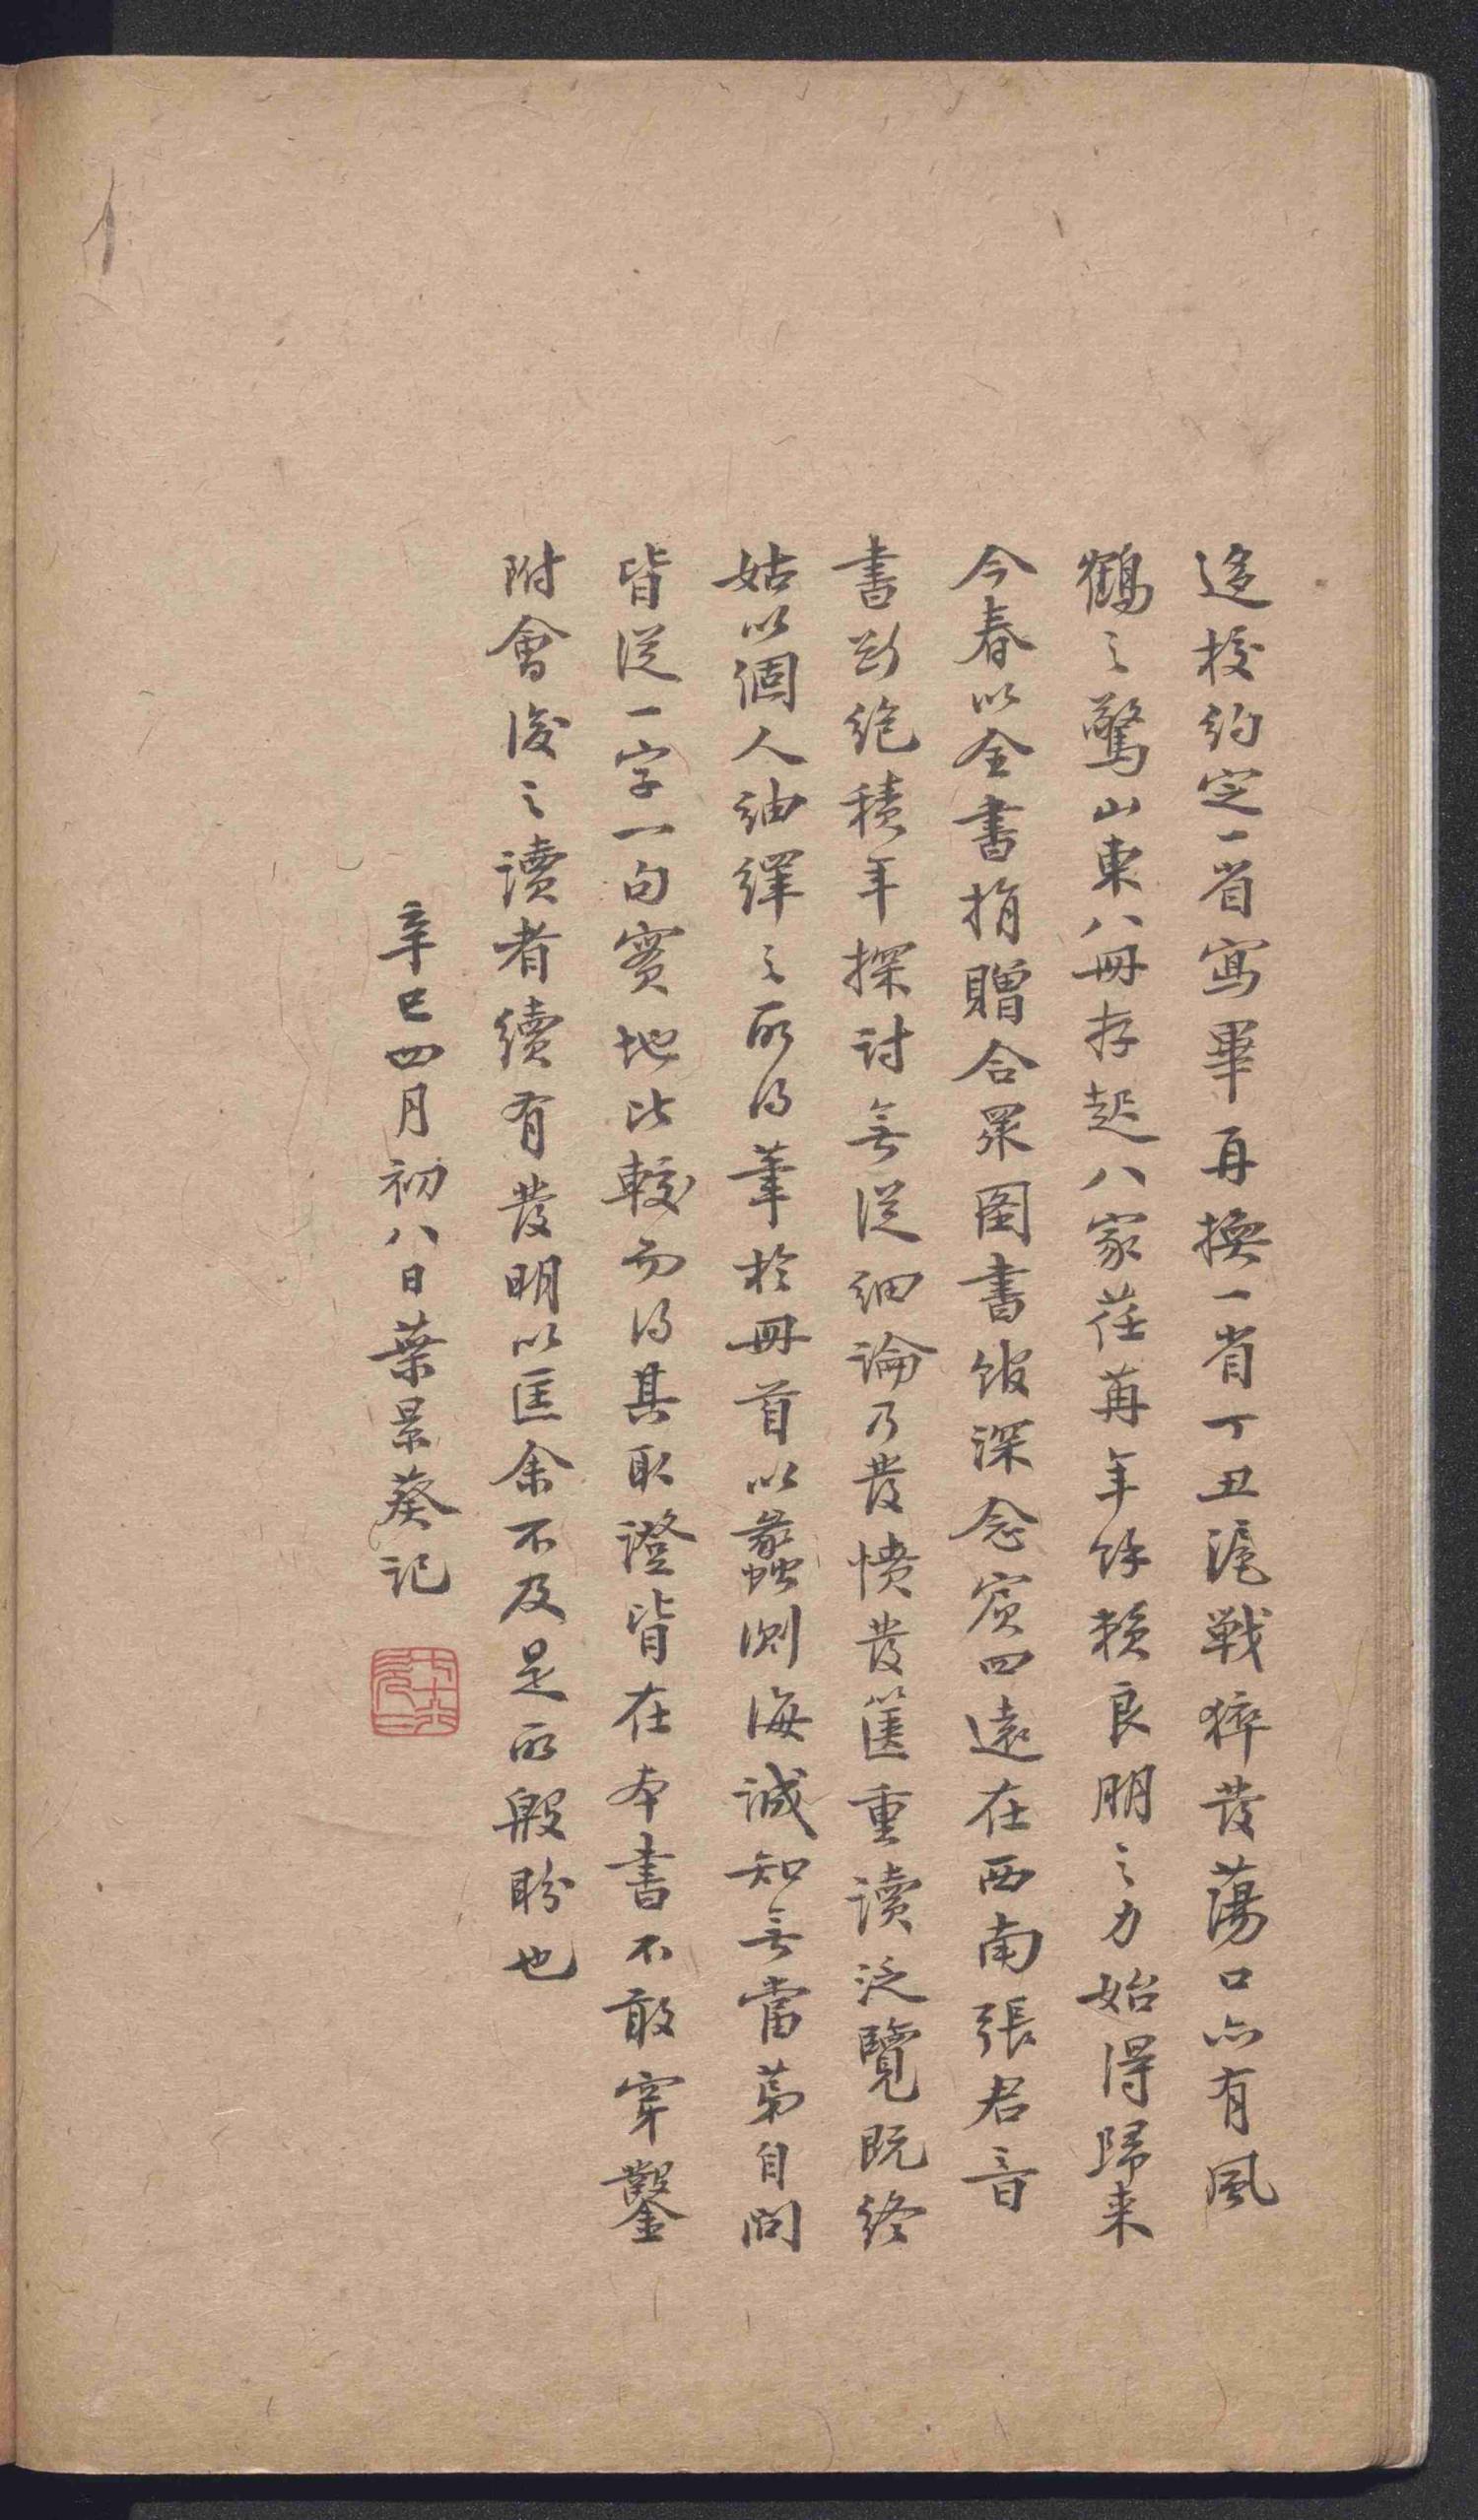 迻校約定一省寫畢再換一省丁丑滬戰猝發蕩口亦有風
鶴之驚山東八冊存起八家荏苒年餘賴良朋之力始得歸来
今春以全書捐贈合眾圖書館深念賓四遠在西南張君音
書斷絶積年探討無從細論乃發憤發篋重讀泛覽既終
姑以個人紬繹之所得筆於冊首以蠡測海誠知無當苐自問
皆從一字一句實地比較而得其取證皆在本書不敢穿鑿
附會後之讀者續有發明以匡余不及是所殷盼也
辛巳四月初八日葉景葵記